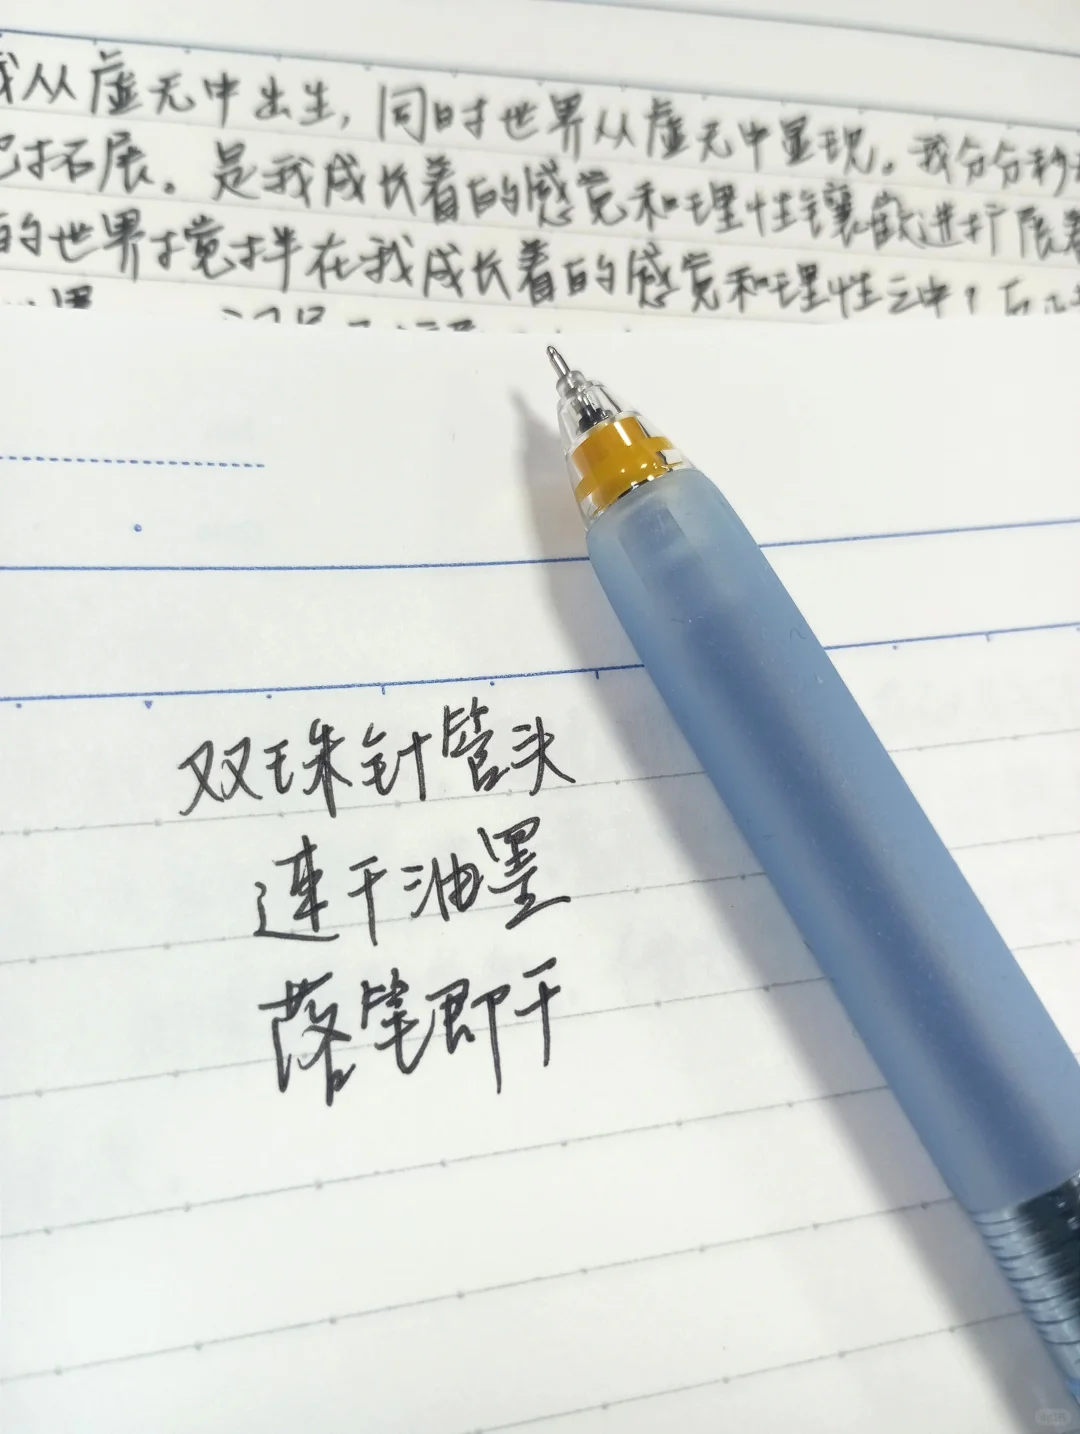 我从虚无中出生,同时世界从虚无中显现。我分分秒
拓展。是我成长着的感觉和理性镶嵌进扩展着
的世界搅拌在我成长着的感觉和理性之中!
双珠针管头
速干油墨
落笔即干